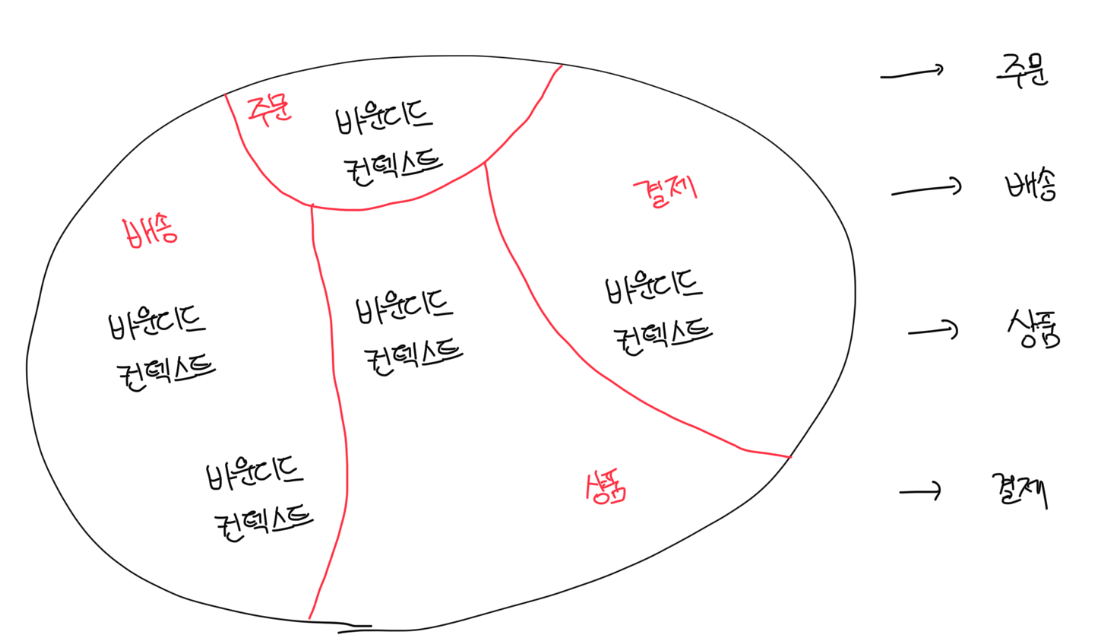 주문
바운디드
컨텍스트
결제
배송
바운디드
컨텍스트
바운디드
컨텍스트
바운디드
컨텍스트
바운디드
컨텍스트
상품
→ 주문
→ 배송
→ 상품
→ 결제